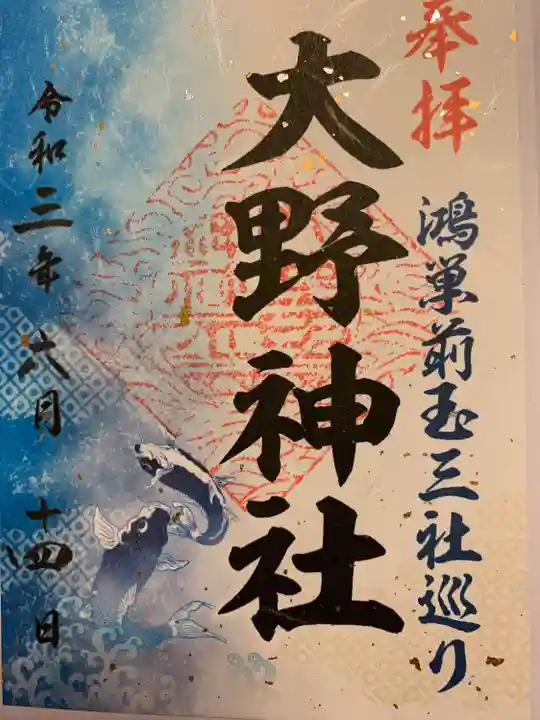 奉拝
鴻巣前玉三社巡り
大野神社
令和三年六月十四日